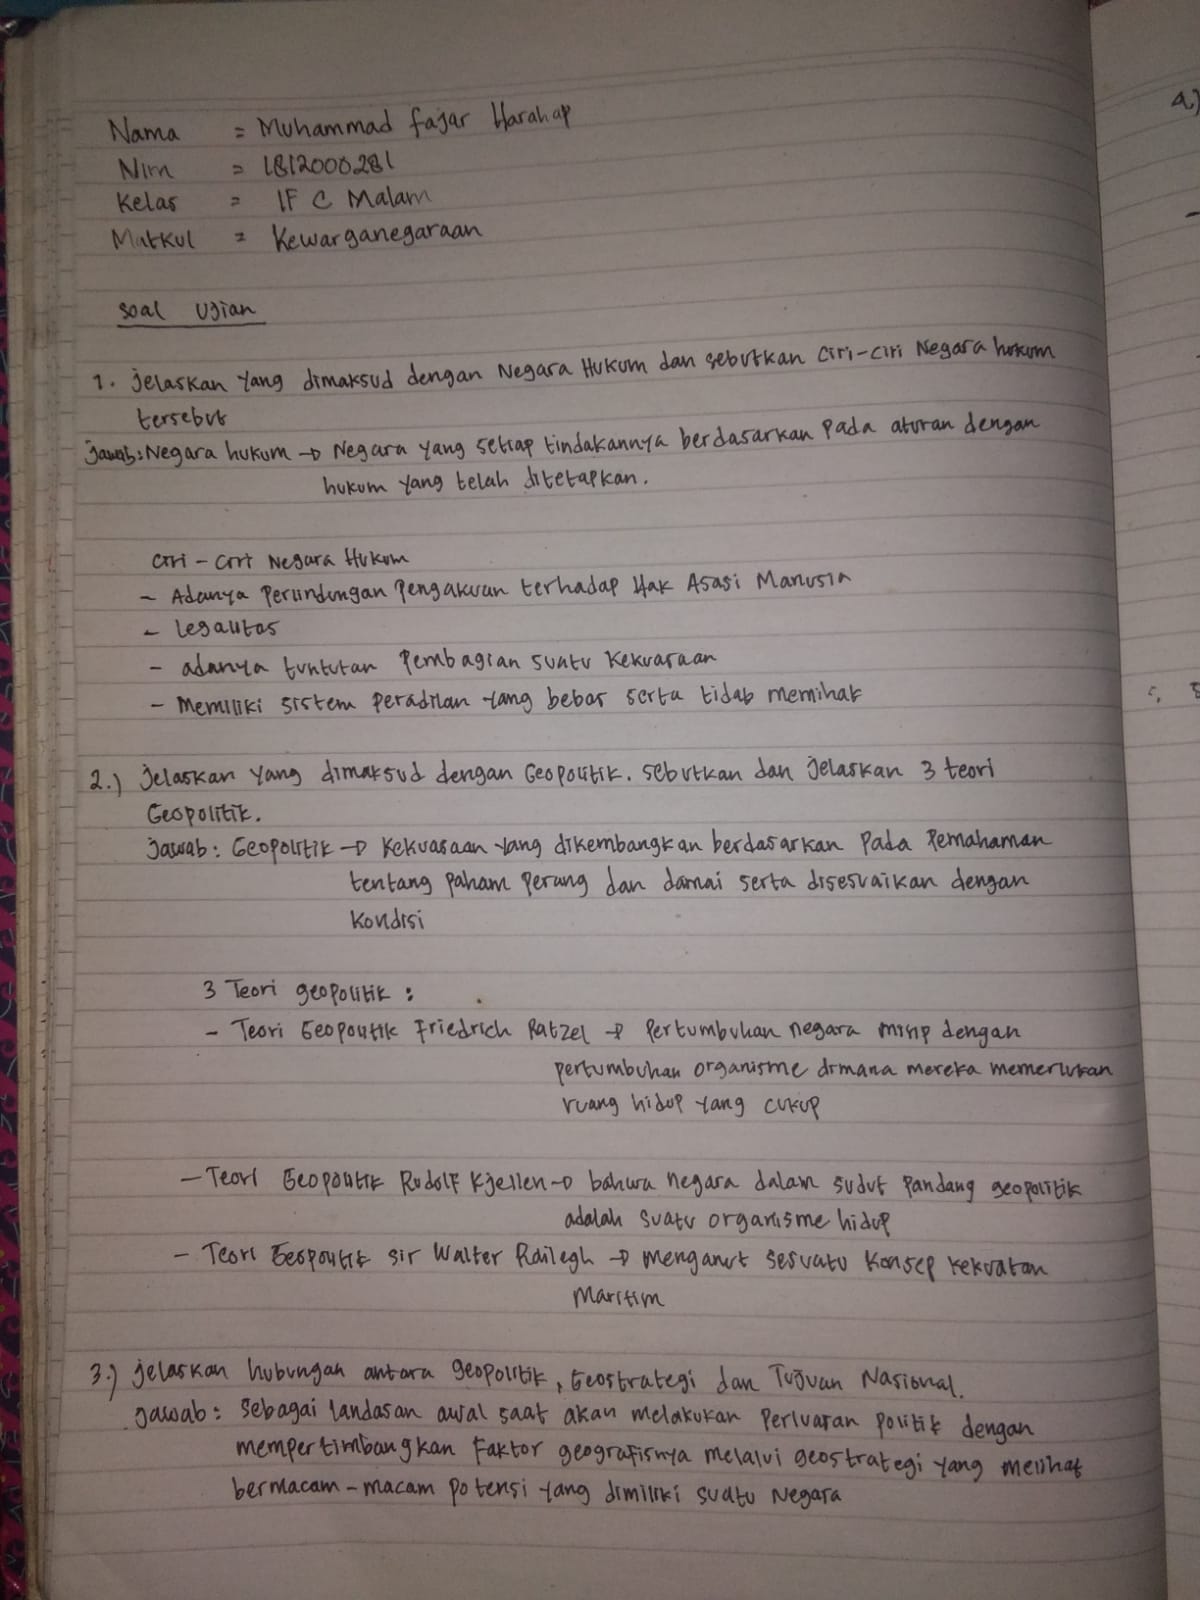 Nama = Muhammad Fajar Harahap
Nim = 1812000281
Kelas = IF C Malam
Matkul = Kewarganegaraan
Soal Ujian
1. Jelaskan yang dimaksud dengan Negara Hukum dan sebutkan ciri-ciri Negara hukum
tersebut
Jawab: Negara hukum → Negara yang setiap tindakannya berdasarkan pada aturan dengan
hukum yang telah ditetapkan.
Ciri-ciri Negara Hukum
- Adanya Perlindungan Pengakuan terhadap Hak Asasi Manusia
- Legalitas
- adanya tuntutan Pembagian suatu Kekuasaan
- Memiliki sistem peradilan yang bebas serta tidak memihak
2.) Jelaskan yang dimaksud dengan Geopolitik. Sebutkan dan jelaskan 3 teori
Geopolitik.
Jawab: Geopolitik → Kekuasaan yang dikembangkan berdasarkan pada Pemahaman
tentang paham perang dan damai serta disesuaikan dengan
Kondisi
3 Teori geopolitik :
- Teori Geopolitik Friedrich Ratzel → Pertumbuhan negara mirip dengan
pertumbuhan organisme dimana mereka memerlukan
ruang hidup yang cukup
- Teori Geopolitik Rudolf Kjellen → bahwa negara dalam sudut pandang geopolitik
adalah suatu organisme hidup
- Teori Geopolitik sir Walter Railegh → menganut sesuatu konsep kekuatan
Maritim
3.) Jelaskan hubungan antara geopolitik, Geostrategi dan Tujuan Nasional.
Jawab: Sebagai landasan awal saat akan melakukan perluaran politik dengan
mempertimbangkan Faktor geografisnya melalui geostrategi yang melihat
bermacam-macam potensi yang dimiliki suatu Negara